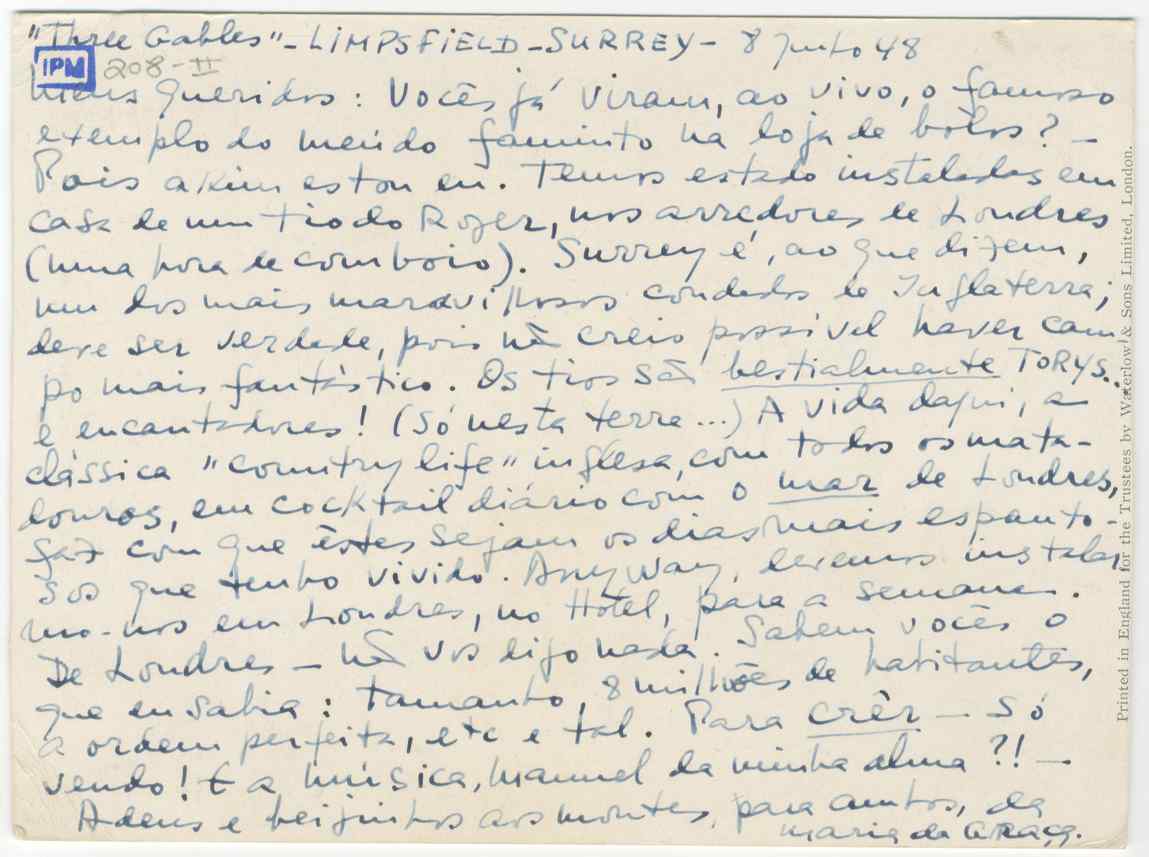 "Three Gables" - LIMPSFIELD - SURREY - 8 Junho 48
IPM 208-II
Meus Queridos: Vocês já viram, ao vivo, o famoso
exemplo do menino faminto na loja de bolos? -
Pois akim estou eu. Temos estado instalados em
casa de um tio do Roger, nos arredores de Londres
(uma hora de comboio). Surrey é, ao que dizem,
um dos mais maravilhosos condados de Inglaterra;
deve ser verdade, pois não creio possível haver cam-
po mais fantástico. Os tios são bestialmente TORYS...
e encantadores! (Só nesta terra...) A vida daqui, a
clássica "country life" inglesa, com todos os mata-
douros, em cocktail diário com o mar de Londres,
faz com que êstes sejam os dias mais espanto-
sos que tenho vivido. Anyway, devemos instalar
mo-nos em Londres, no Hotel, para a semana.
De Londres - não vos digo nada. Sabem vocês o
que eu sabia: tamanho, 8 milhões de habitantes,
a ordem perfeita, etc e tal. Para crêr - só
vendo! E a música, Manuel da minha alma?! -
Adeus e beijinhos aos montes, para ambos, da
Maria da Graça.
Printed in England for the Trustees by Waterlow & Sons Limited, London.